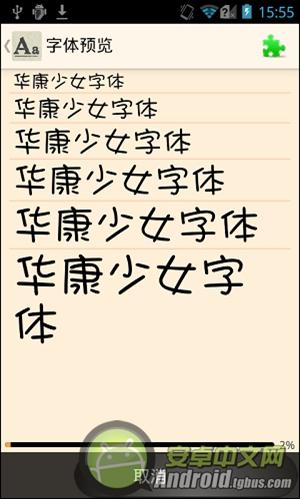 15:55
Aa 字体预览
华康少女字体
华康少女字体
华康少女字体
华康少女字体
华康少女字体
华康少女字
体
2%
取消
安卓中文网
Android.tgbus.com